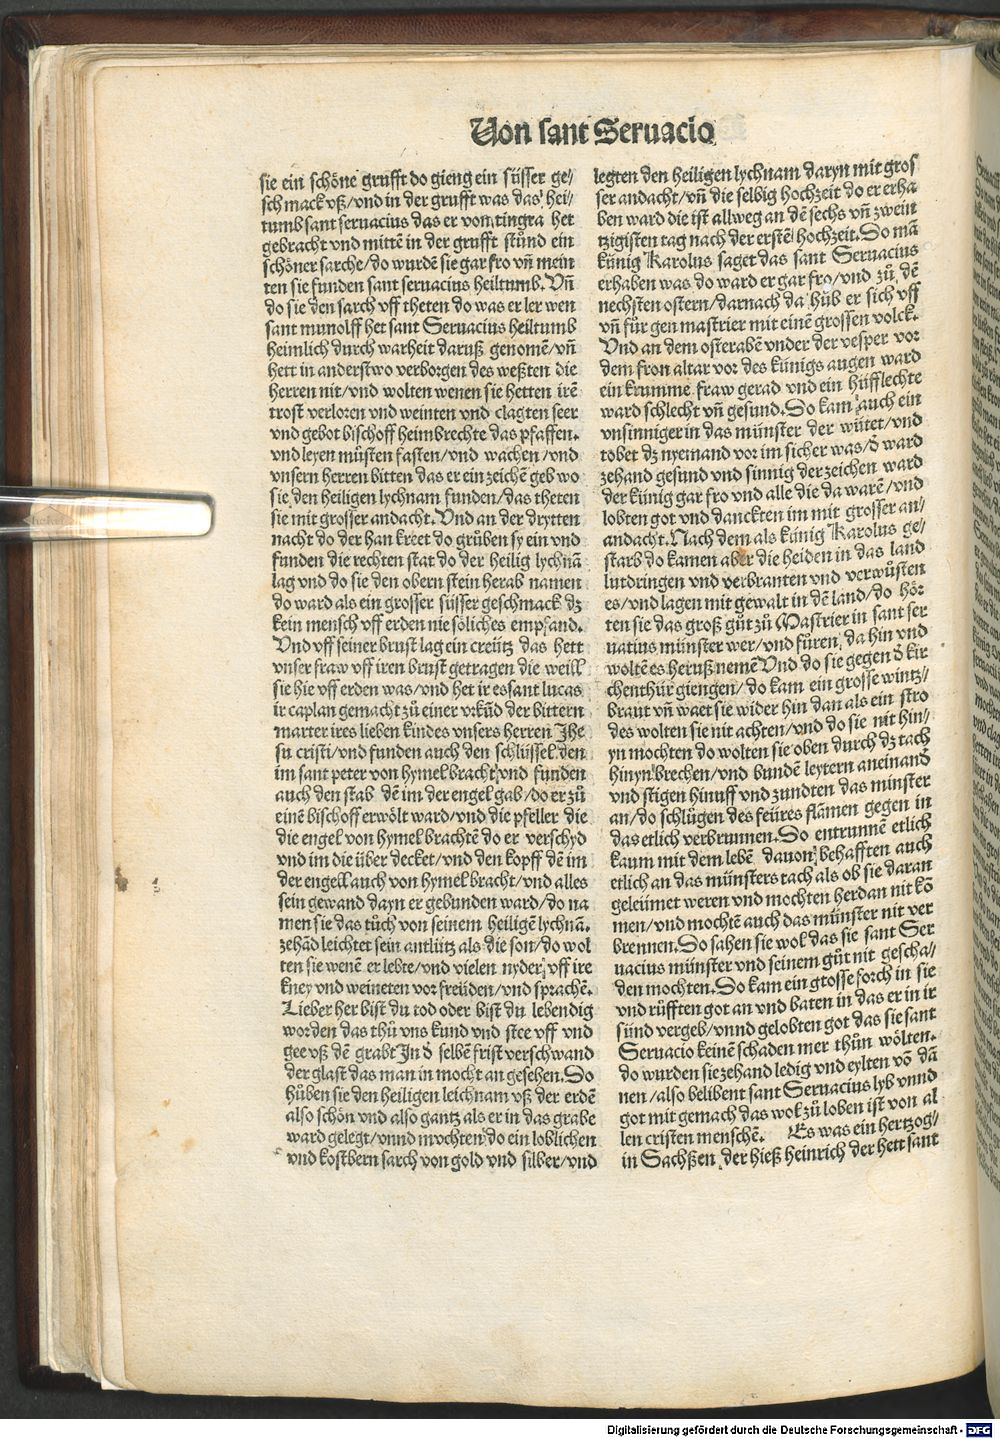 Von sant Seruacio
sie ein schöne grufft do gieng ein süsser ge/
schmack vß/vnd in der grufft was das hei/
tumb sant seruacius das er von tingra het
gebracht vnd mittē in der grufft stůnd ein
schöner sarche/do wurdē sie gar fro vñ mein
ten sie funden sant seruacius heiltumb. Vñ
do sie den sarch vff theten do was er ler wen
sant munolff het sant Seruacius heiltumb
heimlich durch warheit daruß genomē/vñ
hett in anderstwo verborgen des weßten die
herren nit/vnd wolten wenen sie hetten irē
trost verloren vnd weinten vnd clagten seer
vnd gebot bischoff heimbrechte das pfaffen.
vnd leyen müsten fasten/vnd wachen/vnd
vnsern herren bitten das er ein zeichē geb wo
sie den heiligen lychnam funden/das theten
sie mit grosser andacht. Vnd an der drytten
nacht do der han kreet do grůben sy ein vnd
funden die rechten stat do der heilig lychnā
lag vnd do sie den obern stein herab namen
do ward als ein grosser süsser geschmack dz
kein mensch vff erden nie söliches empfand.
Vnd vff seiner brust lag ein creütz das hett
vnser fraw vff iren brust getragen die weill
sie hie vff erden was/vnd het ir es sant lucas
ir caplan gemacht zů einer vrkūd der bittern
marter ires lieben kindes vnsers herren Jhe
su cristi/vnd funden auch den schlüssel den
im sant peter von hymel bracht vnd funden
auch den stab dē im der engel gab/do er zů
einē bischoff erwölt ward/vnd die pfeller die
die engel von hymel brachtē do er verschyd
vnd im die über decket/vnd den kopff dē im
der engell auch von hymel bracht/vnd alles
sein gewand dayn er gebunden ward/do na
men sie das tůch von seinem heiligē lychnā.
zehād leichter sein antlütz als die son/do wol
ten sie wenē er lebte/vnd vielen nyder vff ire
kney vnd weineten vor freüden/vnd sprachē.
Lieber her bist du tod oder bist du lebendig
worden das thů vns kund vnd stee vff vnd
gee vß dē grabt Jn d̄ selbē frist verschwand
der glast das man in mocht an gesehen. So
hůben sie den heiligen leichnam vß der erdē
also schön vnd also gantz als er in das grabe
ward gelegt/vnnd mochten do ein loblichen
vnd kostbern sarch von gold vnd silber/vnd
legten den heiligen lychnam daryn mit gros
ser andacht/vñ die selbig hochzeit do er erha
ben ward die ist allweg an dē sechs vñ zwein
tzigisten tag nach der erstē hochzeit. Do mā
künig Karolus saget das sant Seruacius
erhaben was do ward er gar fro/vnd zů dē
nechsten ostern/darnach da hůb er sich vff
vñ für gen mastrier mit einē grossen volck.
Vnd an dem osterabē vnder der vesper vor
dem fron altar vor des künigs augen ward
ein krumme fraw gerad vnd ein hüfflechte
ward schlecht vñ gesund. So kam auch ein
vnsinniger in das münster der wütet/vnd
tobet dz nyemand vor im sicher was/d̄ ward
zehand gesund vnd sinnig der zeichen ward
der künig gar fro vnd alle die da warē/vnd
lobten got vnd danckten im mit grosser an/
andacht. Nach dem als künig Karolus ge/
starb do kamen aber die heiden in das land
lutdringen vnd verbranten vnd verwůsten
es/vnd lagen mit gewalt in dē land/do hör
ten sie das groß gůt zů Mastrier in sant ser
uatius münster wer/vnd füren da hin vnd
woltē es heruß nemē Vnd do sie gegen d̄ kir
chenthür giengen/do kam ein grosse wintz/
braut vñ waet sie wider hin dan als ein stro
des wolten sie nit achten/vnd do sie nit hin/
yn mochten do wolten sie oben durch dz tach
hinyn brechen/vnd bundē leytern aneinand
vnd stigen hinuff vnd zundten das münster
an/do schlůgen des feüres flāmen gegen in
das etlich verbrunnen. So entrunnē etlich
kaum mit dem lebē dauon behafften auch
etlich an das münsters tach als ob sie daran
geleümet weren vnd mochten herdan nit kō
men/vnd mochtē auch das münster nit ver
brennen. So sahen sie wol das sie sant Ser
uacius münster vnd seinem gůt nit gescha/
den mochten. So kam ein gtosse forch in sie
vnd růfften got an vnd baten in das er in ir
sünd vergeb/vnnd gelobten got das sie sant
Seruacio keinē schaden mer thůn wölten.
do wurden sie zehand ledig vnd eylten vō dā
nen/also belibent sant Seruacius lyb vnnd
got mit gemach das wol zů loben ist von al
len cristen menschē. Es was ein hertzog/
in Sachßen der hieß heinrich der hett sant
Digitalisierung gefördert durch die Deutsche Forschungsgemeinschaft - DFG